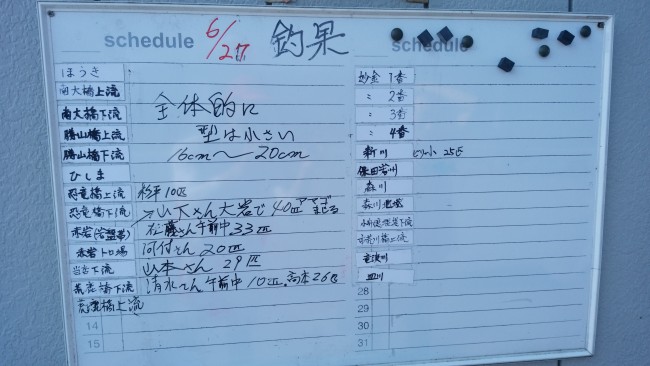 schedule 6/27 釣果
ほうき
南大橋上流
南大橋下流 全体的に
勝山橋上流 型は小さい
勝山橋下流 16cm〜20cm
ひしま
恐竜橋上流 杉平 10匹
恐竜橋下流 山下さん大岩で40匹 アマゴまじる
赤岩 午前中 33匹
赤岩トロ場 河付さん 20匹
当岩下流 山本さん 29匹
荒鹿橋下流 清水さん午前中10匹. 高本26匹
荒鹿橋上流
14
15
schedule
妙金 1番
〃 2番
〃 3番
〃 4番
新川 ピリ小 25匹
保田岩川
森川
森川
竜波川
皿川
28
29
30
31